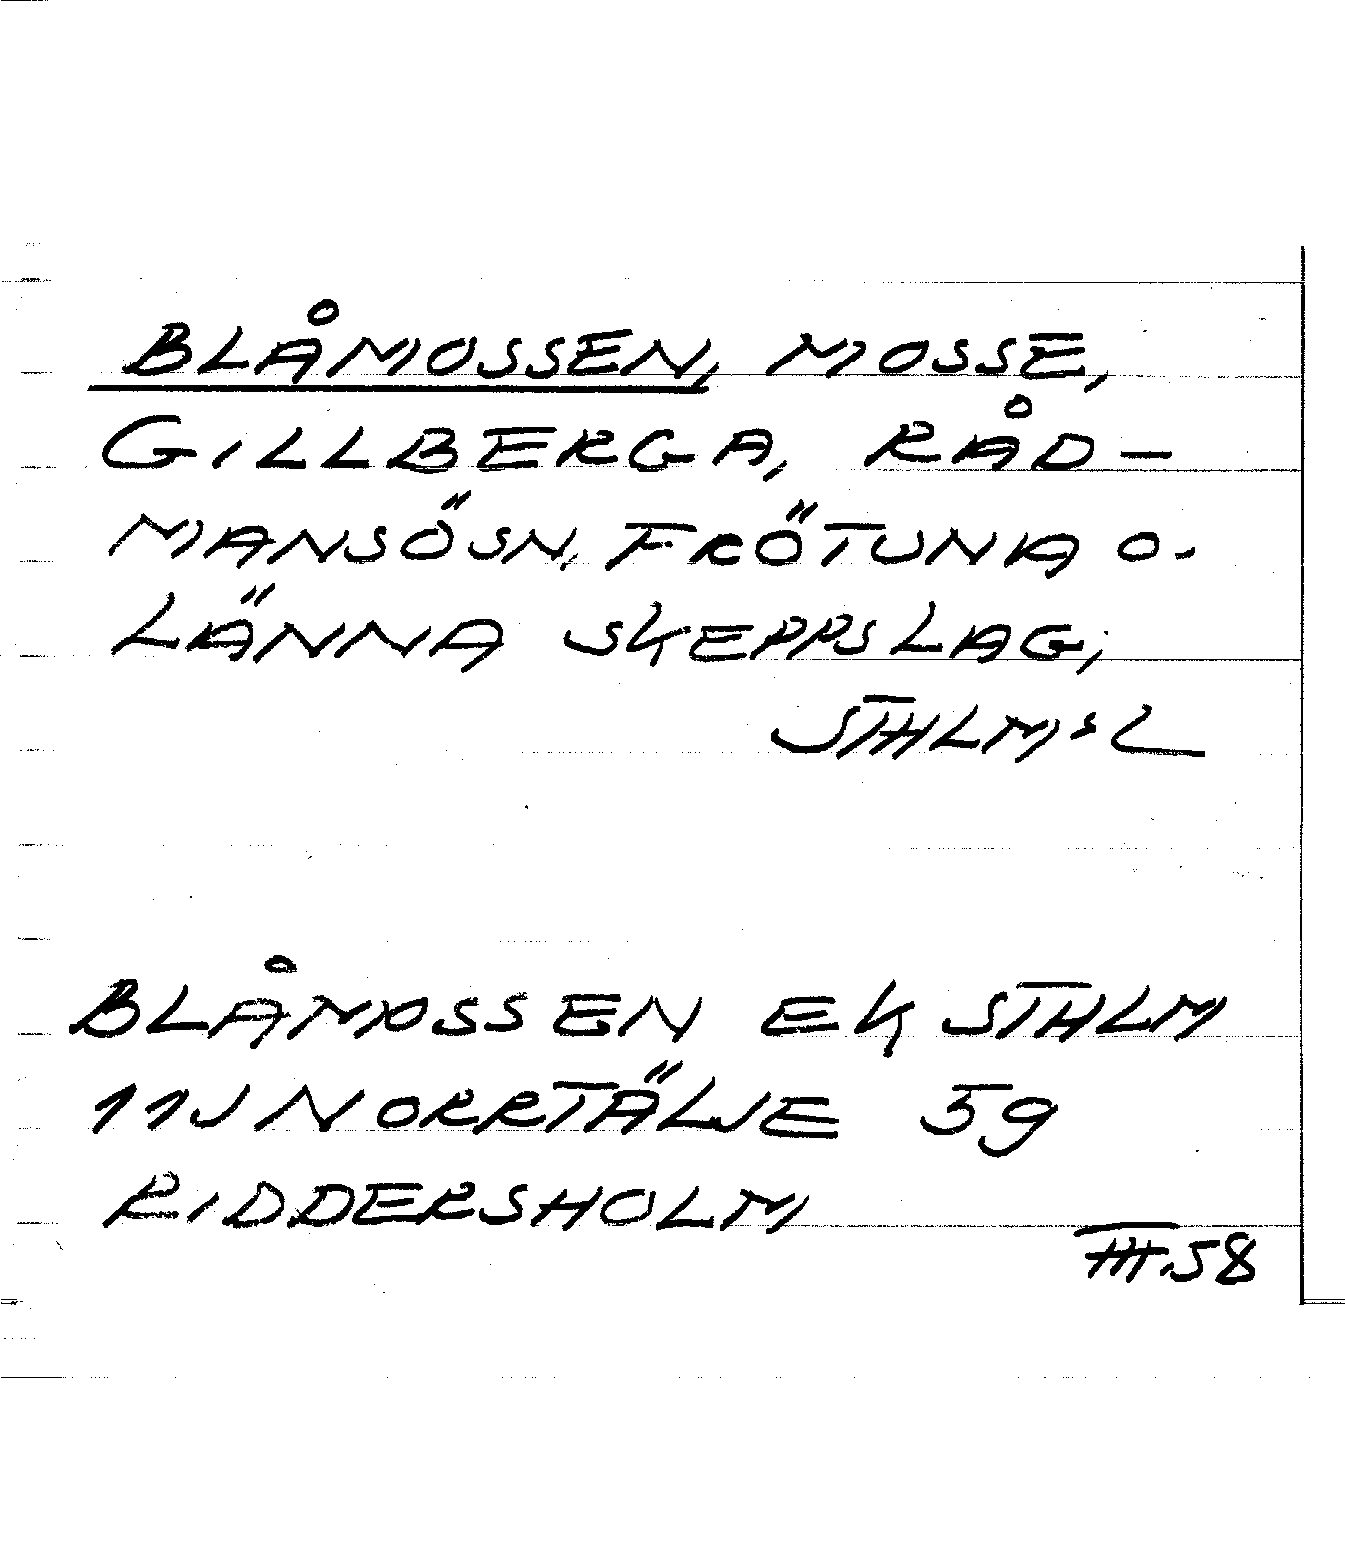 BLÅMOSSEN, MOSSE,
GILLBERGA, RÅD-
MANSÖSN, FRÖTUNA O.
LÄNNA SKEPPSLAG;
STHLMS L
BLÅMOSSEN EK STHLM
11J NORRTÄLJE 59
RIDDERSHOLM
III.58